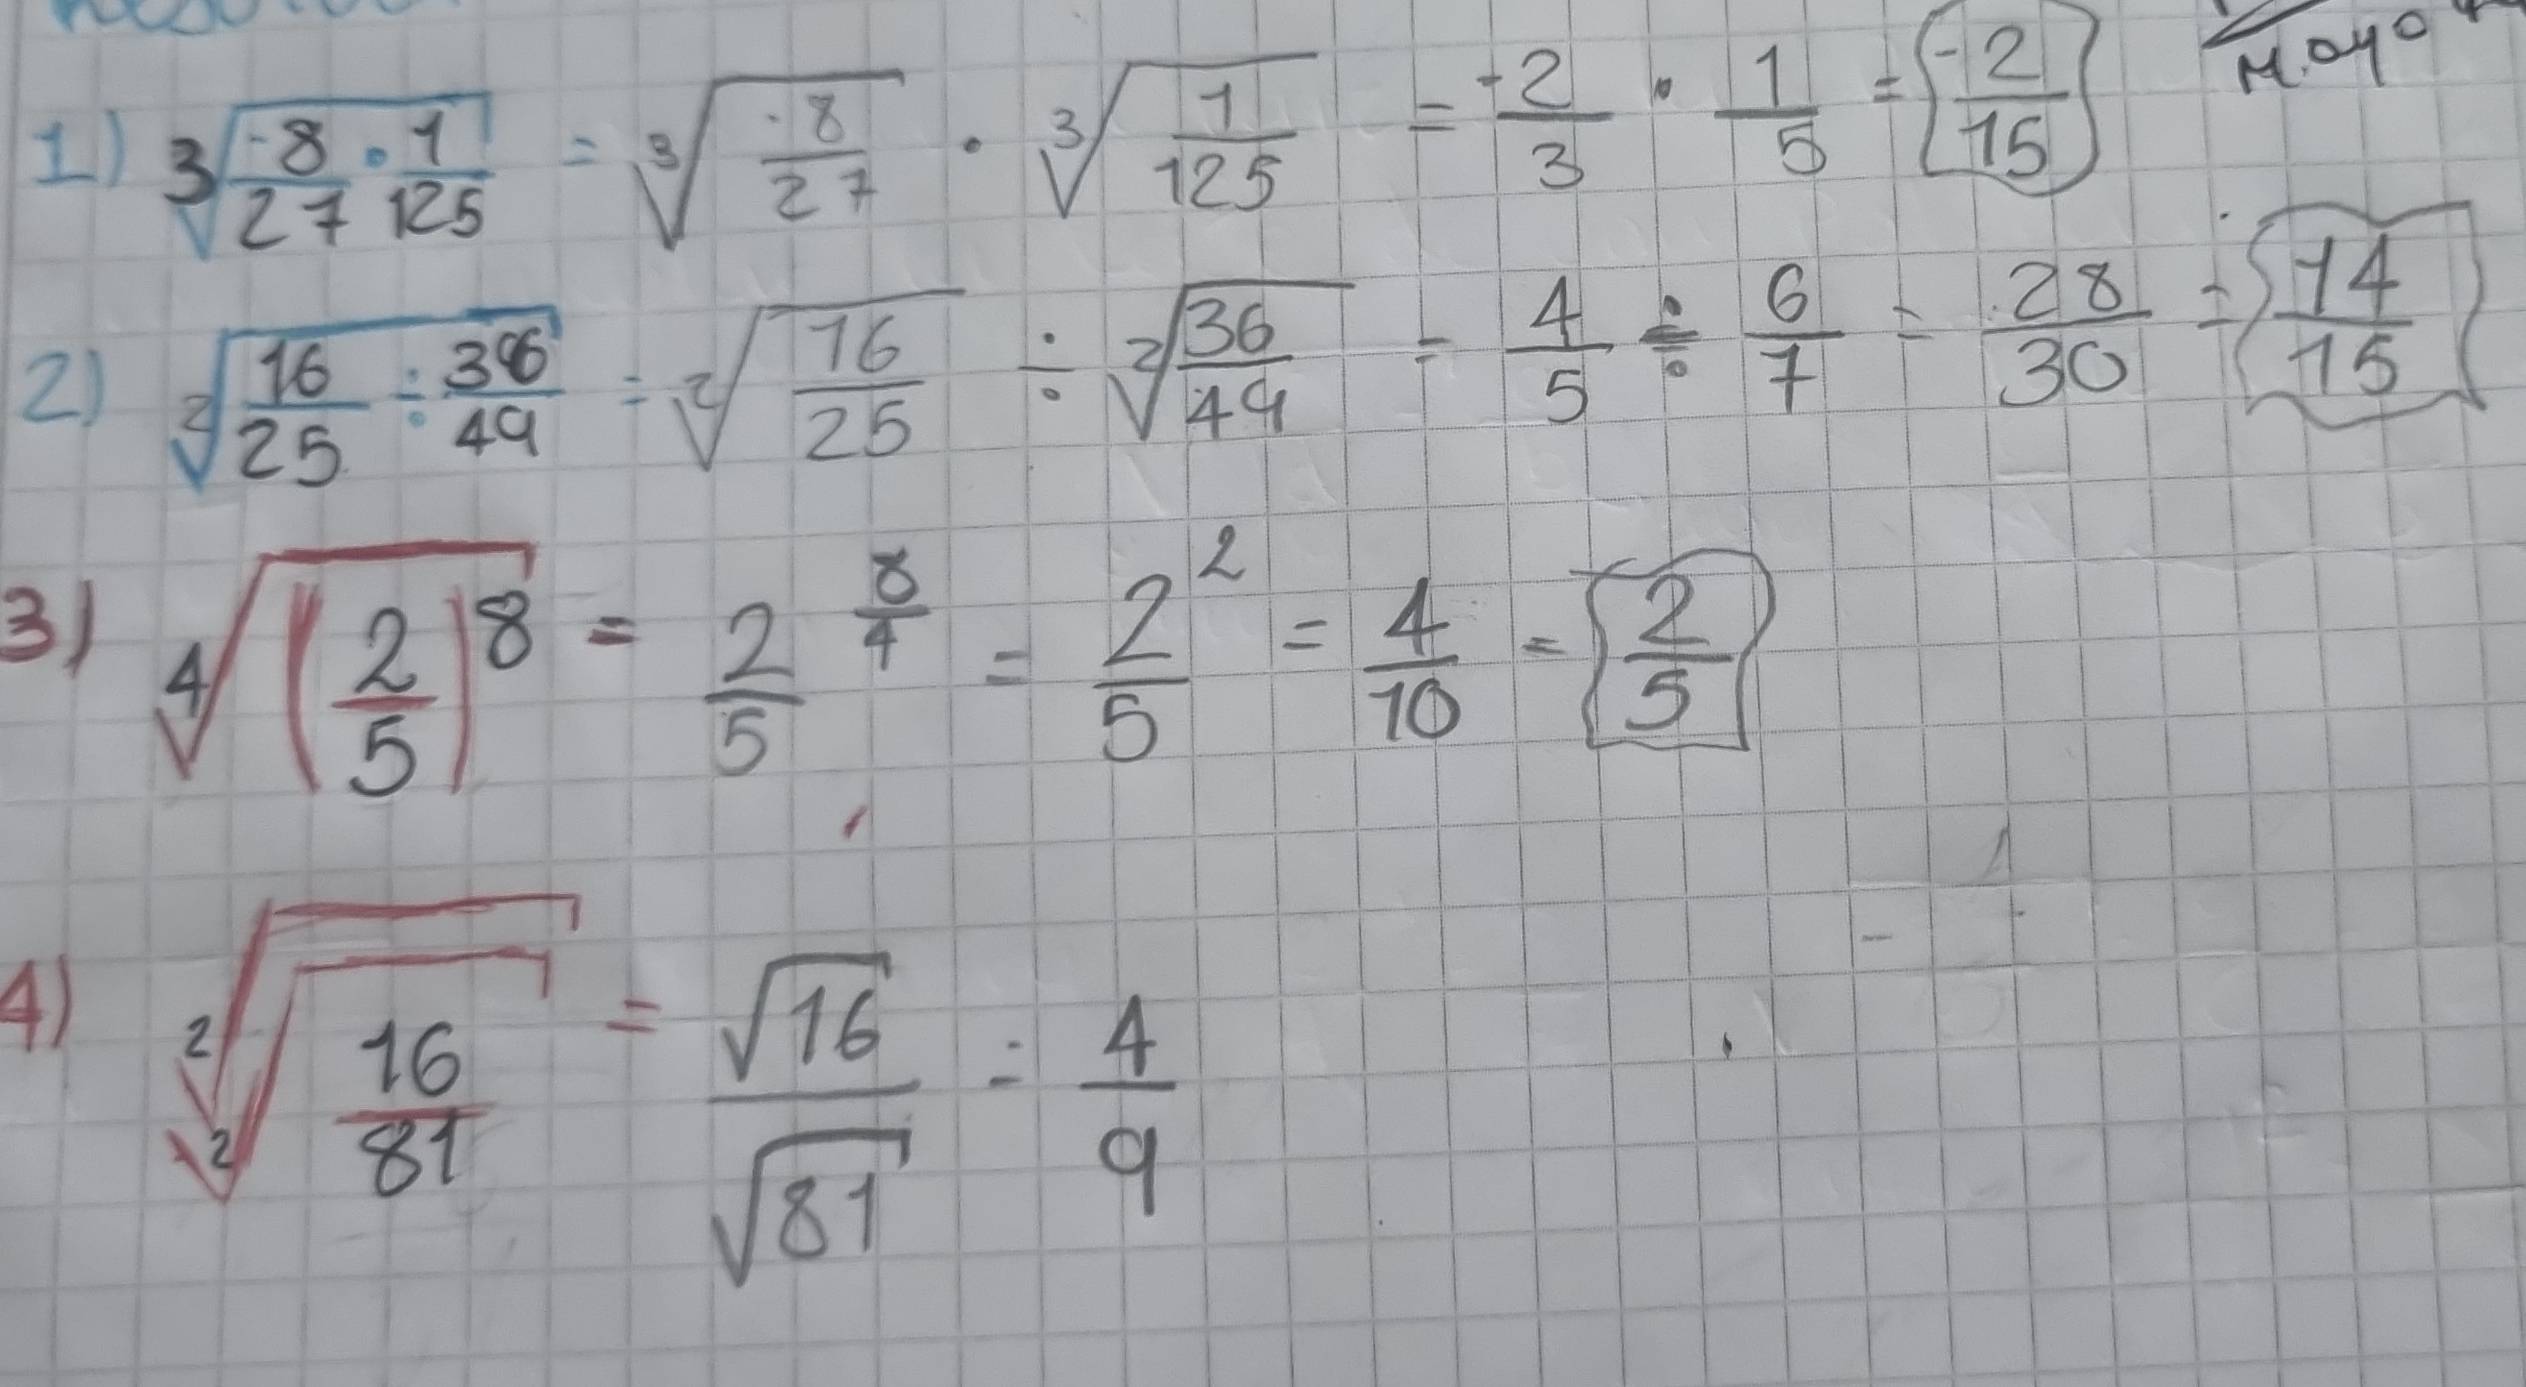 Mayo
1) ∛(-8/27 · 1/125) = ∛(-8/27) · ∛(1/125) = -2/3 · 1/5 = {-2/15}
2) ²√(16/25 ÷ 36/49) = ²√(16/25) ÷ ²√(36/49) = 4/5 ÷ 6/7 = 28/30 = {14/15}
3) ⁴√((2/5)^8) = 2/5^(8/4) = 2/5^2 = 4/10 = {2/5}
4) ²√(²√(16/81)) = √16/√81 = 4/9